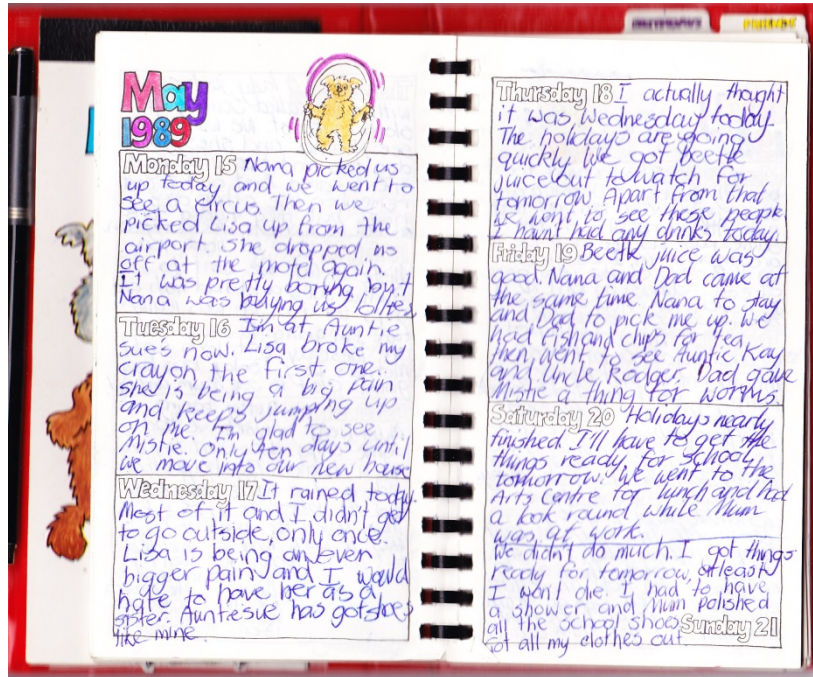 BIRTHDAYS
FRIENDS
May
1989
Monday 15 Nana picked us
up today and we went to
see a circus. Then we
picked Lisa up from the
airport. She dropped us
off at the motel again.
It was pretty boring but
Nana was buying us lollies
Tuesday 16 I'm at Auntie
sue's now. Lisa broke my
crayon the first one.
she is being a big pain
and keeps jumping up
on me. I'm glad to see
Mistie. Only ten days until
we move into our new house
Wednesday 17 It rained today.
Most of it and I didn't get
to go outside, only once.
Lisa is being an even
bigger pain and I would
hate to have her as a
sister. Auntiesue has got shoes
like mine.
Thursday 18 I actually thought
it was Wednesday today.
The holidays are going
quickly. We got Beetle
juice out to watch for
tomorrow. Apart from that
we went to see these people
I havnt had any drinks today
Friday 19 Beetle juice was
good. Nana and Dad came at
the same time. Nana to stay
and Dad to pick me up. We
had fish and chips for tea
then went to see Auntie Kay
and Uncle Rodger. Dad gave
Mistie a thing for worms.
Saturday 20 Holidays nearly
finished I'll have to get the
things ready for school
tomorrow. We went to the
Arts Centre for lunch and had
a look round while Mum
was at work.
We didn't do much. I got things
ready for tomorrow, atleast
I wont die. I had to have
a shower and Mum polished
all the school shoes Sunday 21
Got all my clothes out